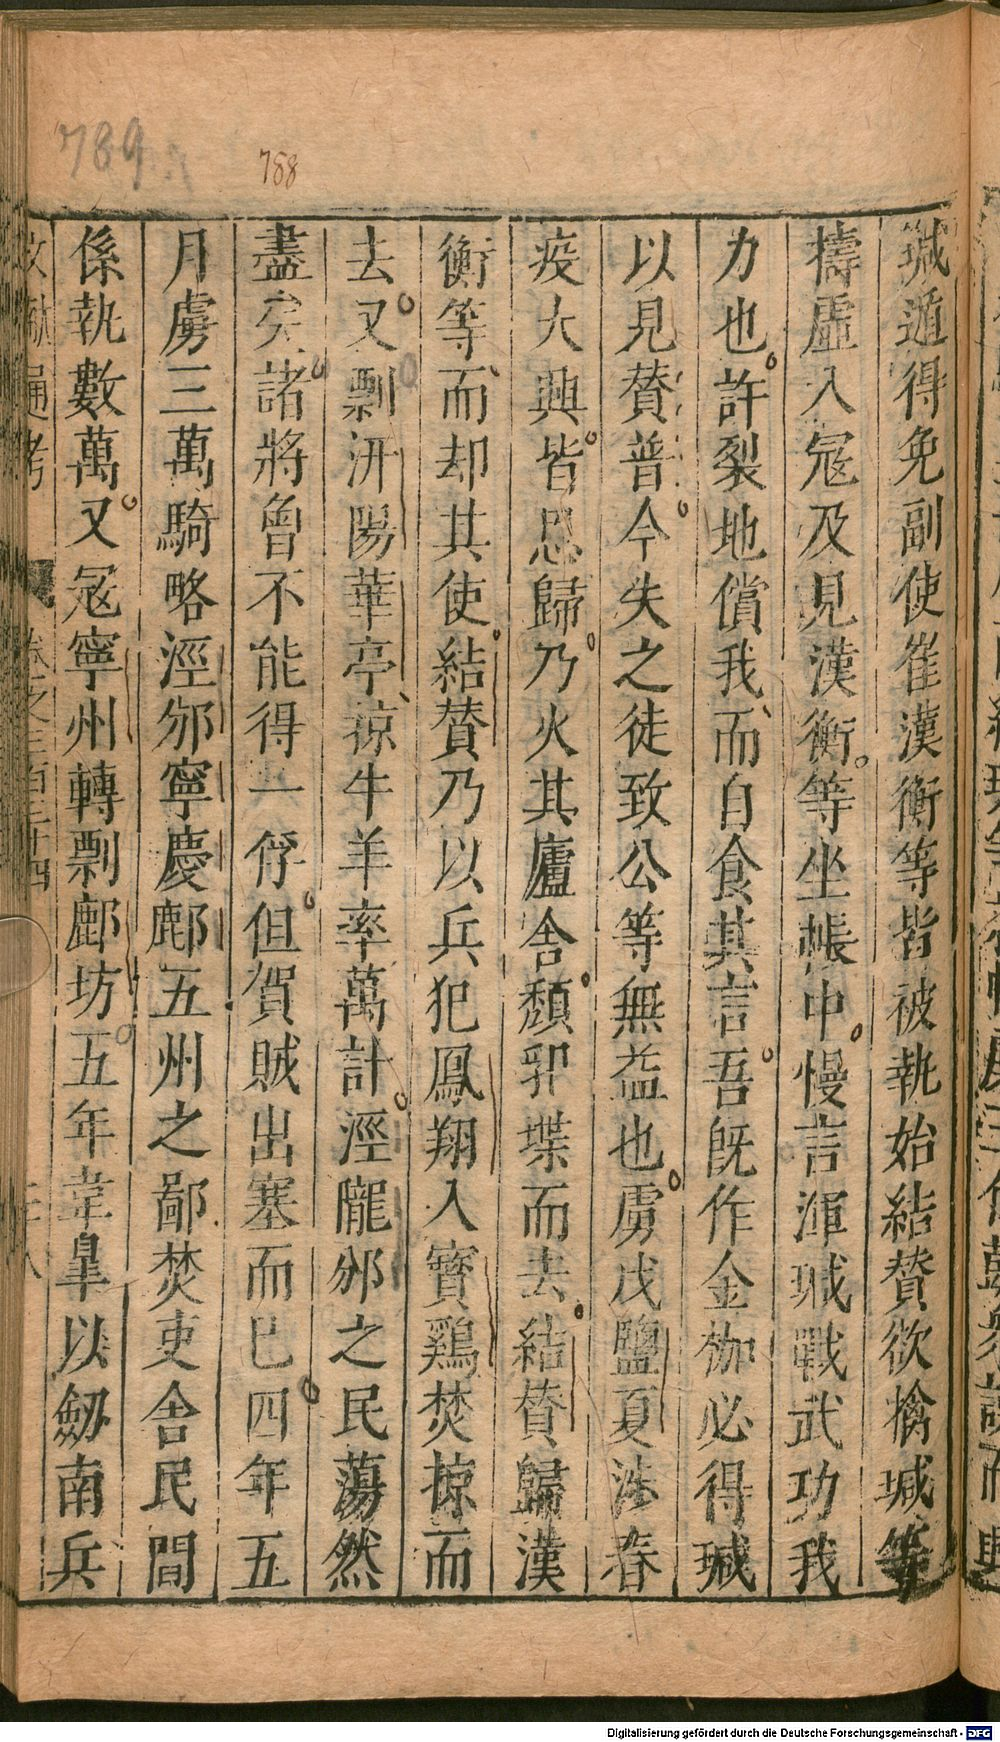 789
788
瑊遁得免副使崔漢衡等皆被執始結贊欲擒瑊等
擣虛入冦及見漢衡等坐帳中慢言渾瑊戰武功我
力也許裂地償我而自食其言吾既作金枷必得瑊
以見贊普今失之徒致公等無益也虜戍鹽夏涉春
疫大興皆思歸乃火其廬舍頹郛堞而去結贊歸漢
衡等而却其使結贊乃以兵犯鳳翔入寶鷄焚掠而
去又剽汧陽華亭掠牛羊率萬計涇隴邠之民蕩然
盡矣諸將曾不能得一俘但賀賊出塞而已四年五
月虜三萬騎略涇邠寧慶鄜五州之鄙焚吏舍民間
係執數萬又冦寧州轉剽鄜坊五年韋臯以劒南兵
文獻通考 卷之三百三十四 二十八
Digitalisierung gefördert durch die Deutsche Forschungsgemeinschaft - DFG